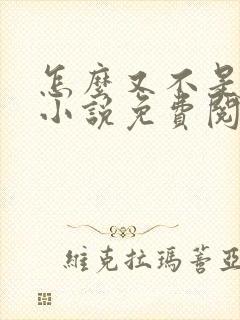 怎麼又不是
小說免費閱
維克拉瑪蓍亞